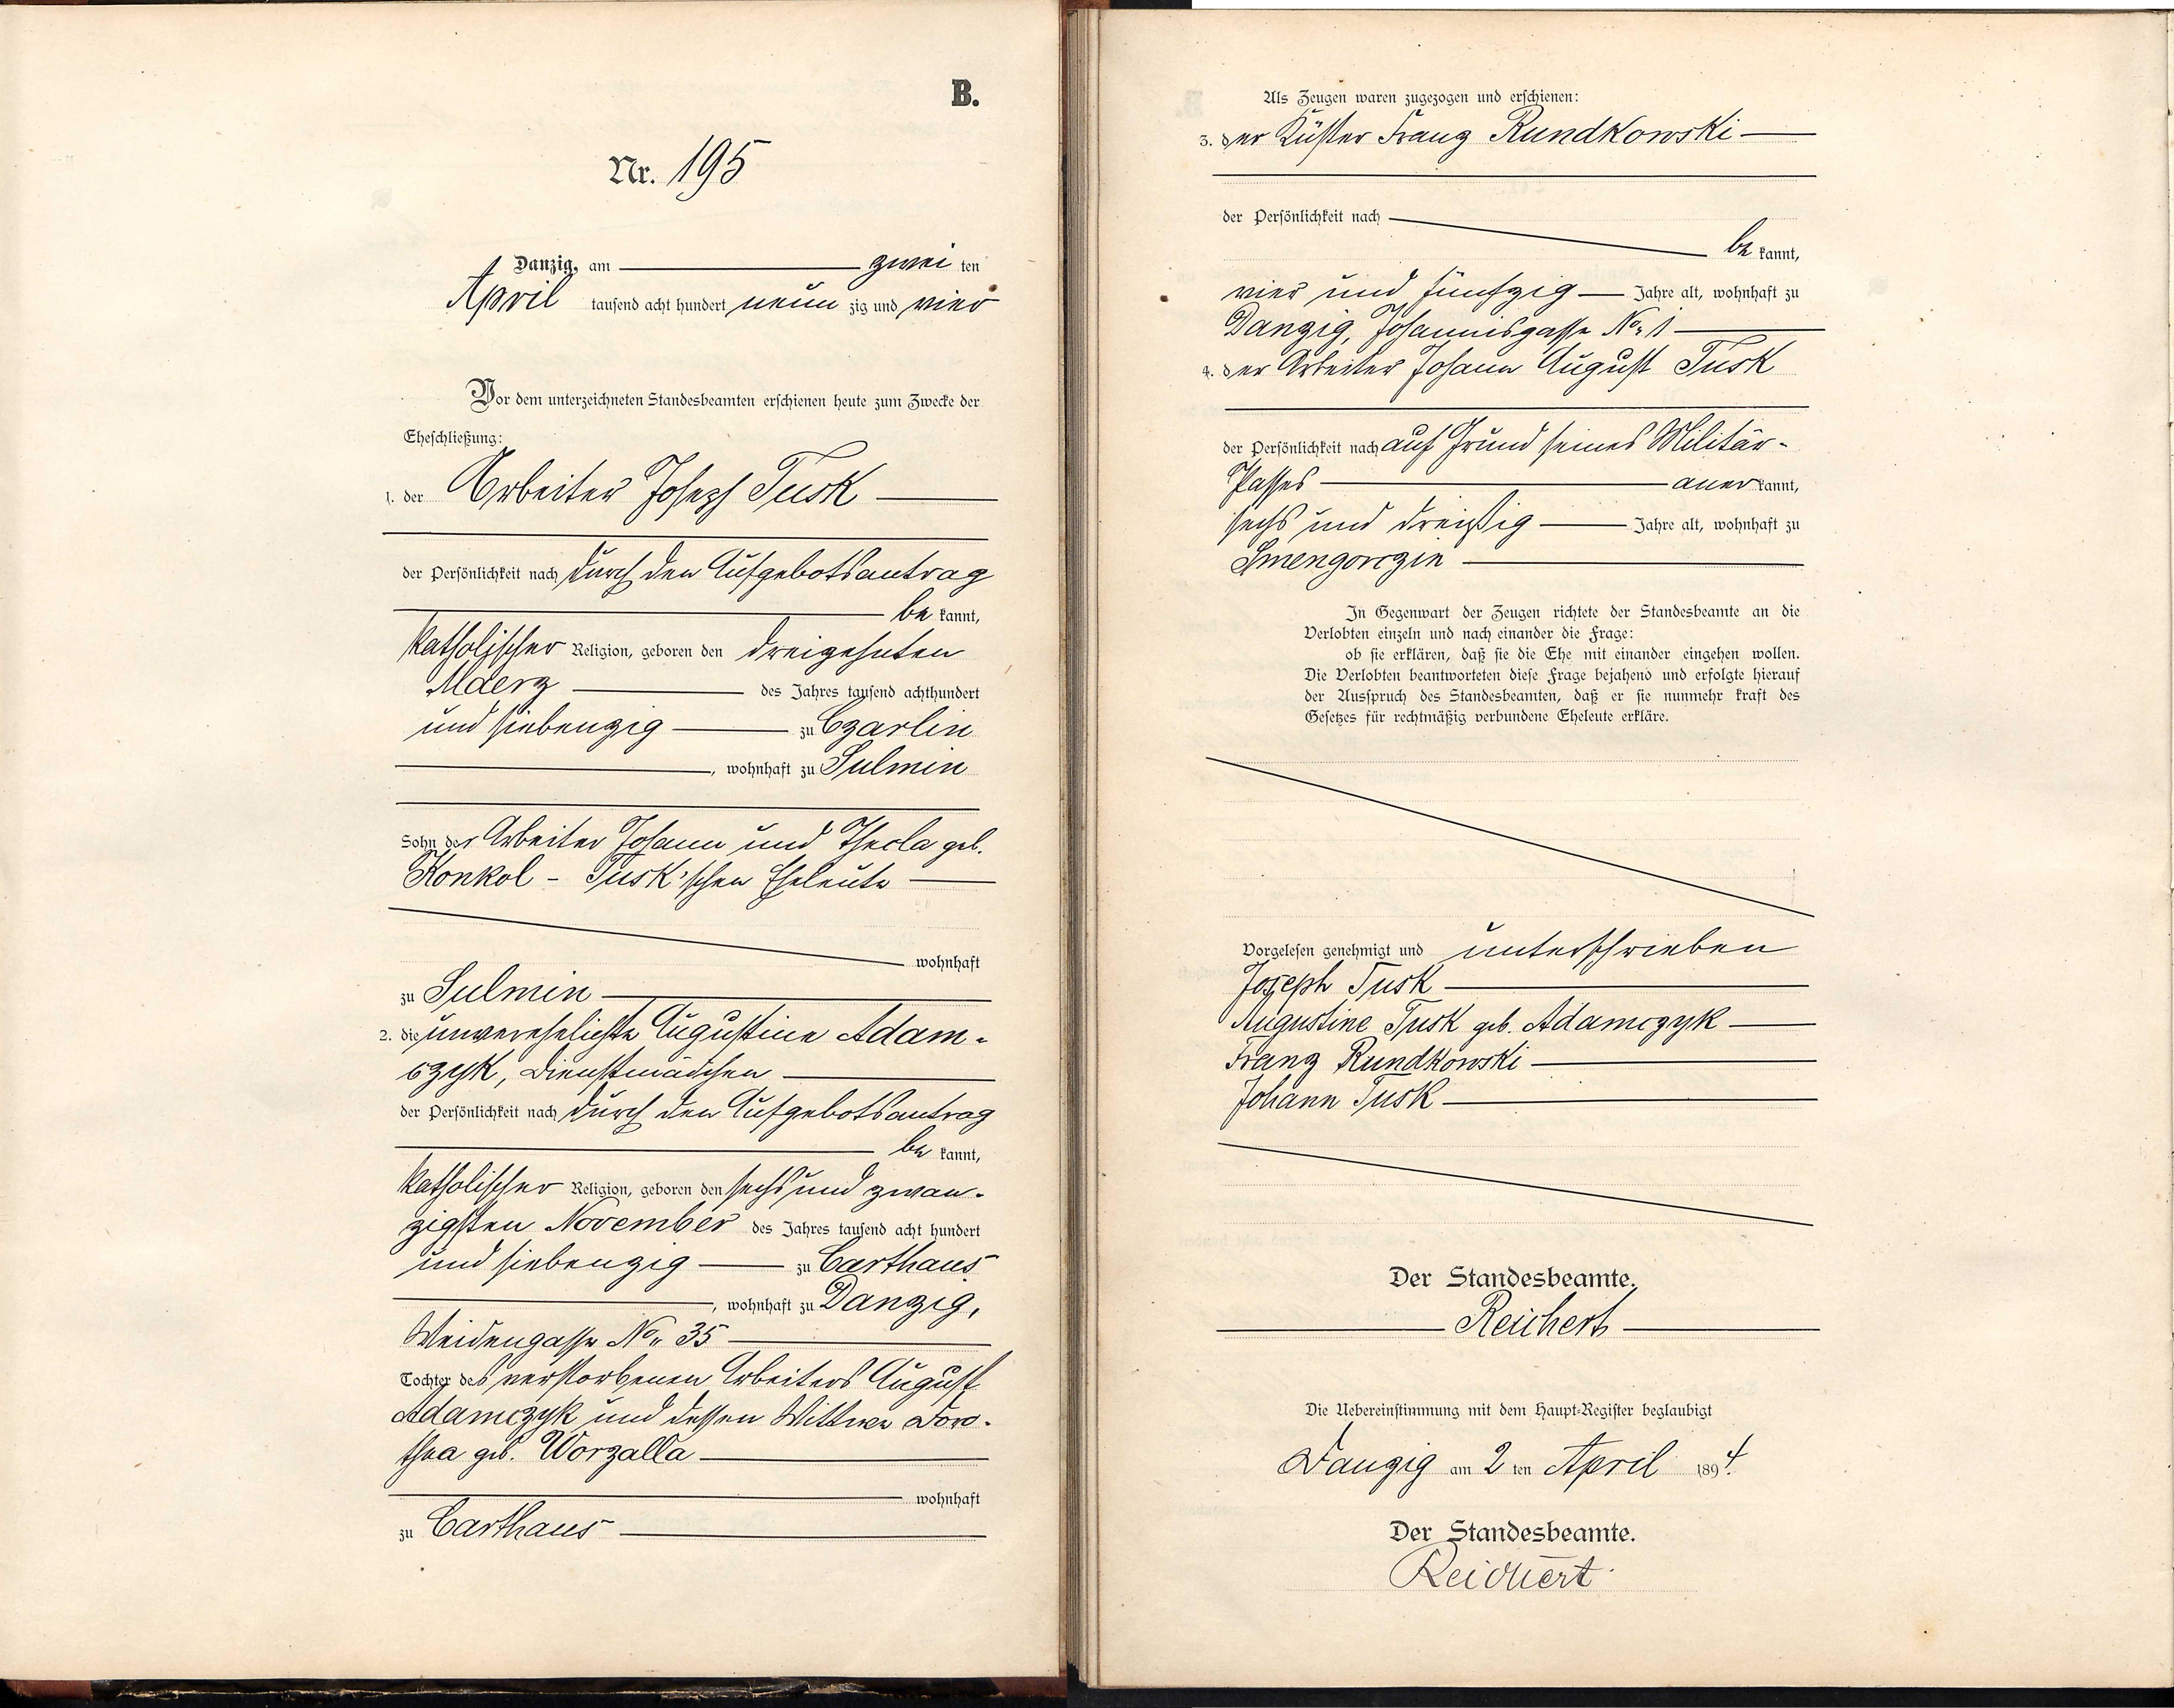 B.
Nr. 195
Danzig, am zwei ten
April tausend acht hundert neun zig und vier
Vor dem unterzeichneten Standesbeamten erschienen heute zum Zwecke der
Eheschließung:
1. der Arbeiter Joseph Tusk
der Persönlichkeit nach durch den Aufgebotsantrag
be kannt,
katholischer Religion, geboren den dreizehnten
Maerz des Jahres tausend achthundert
und siebenzig zu Czarlin
, wohnhaft zu Sulmin
Sohn der Arbeiter Johann und Thecla geb.
Konkol - Tusk'schen Eheleute
wohnhaft
zu Sulmin
2. die unverehelichte Augustine Adam-
czyk, Dienstmädchen
der Persönlichkeit nach durch den Aufgebotsantrag
be kannt,
katholischer Religion, geboren den sechs und zwan-
zigsten November des Jahres tausend acht hundert
und siebenzig zu Carthaus
, wohnhaft zu Danzig,
Weidengasse No. 35
Tochter des verstorbenen Arbeiters August
Adamczyk und dessen Wittwe Doro-
thea geb. Worzalla
wohnhaft
zu Carthaus
Als Zeugen waren zugezogen und erschienen:
3. der Küster Franz Rundkowski
der Persönlichkeit nach
be kannt,
vier und fünfzig Jahre alt, wohnhaft zu
Danzig, Johannisgasse No. 1
4. der Arbeiter Johann August Tusk
der Persönlichkeit nach auf Grund seines Militär-
Passes aner kannt,
sechs und dreißig Jahre alt, wohnhaft zu
Smengorczin
In Gegenwart der Zeugen richtete der Standesbeamte an die
Verlobten einzeln und nach einander die Frage:
ob sie erklären, daß sie die Ehe mit einander eingehen wollen.
Die Verlobten beantworteten diese Frage bejahend und erfolgte hierauf
der Ausspruch des Standesbeamten, daß er sie nunmehr kraft des
Gesetzes für rechtmäßig verbundene Eheleute erkläre.
Vorgelesen genehmigt und unterschrieben
Joseph Tusk
Augustine Tusk geb. Adamczyk
Franz Rundkowski
Johann Tusk
Der Standesbeamte.
Reichert
Die Uebereinstimmung mit dem Haupt-Register beglaubigt
Danzig am 2 ten April 1894.
Der Standesbeamte.
Reichert